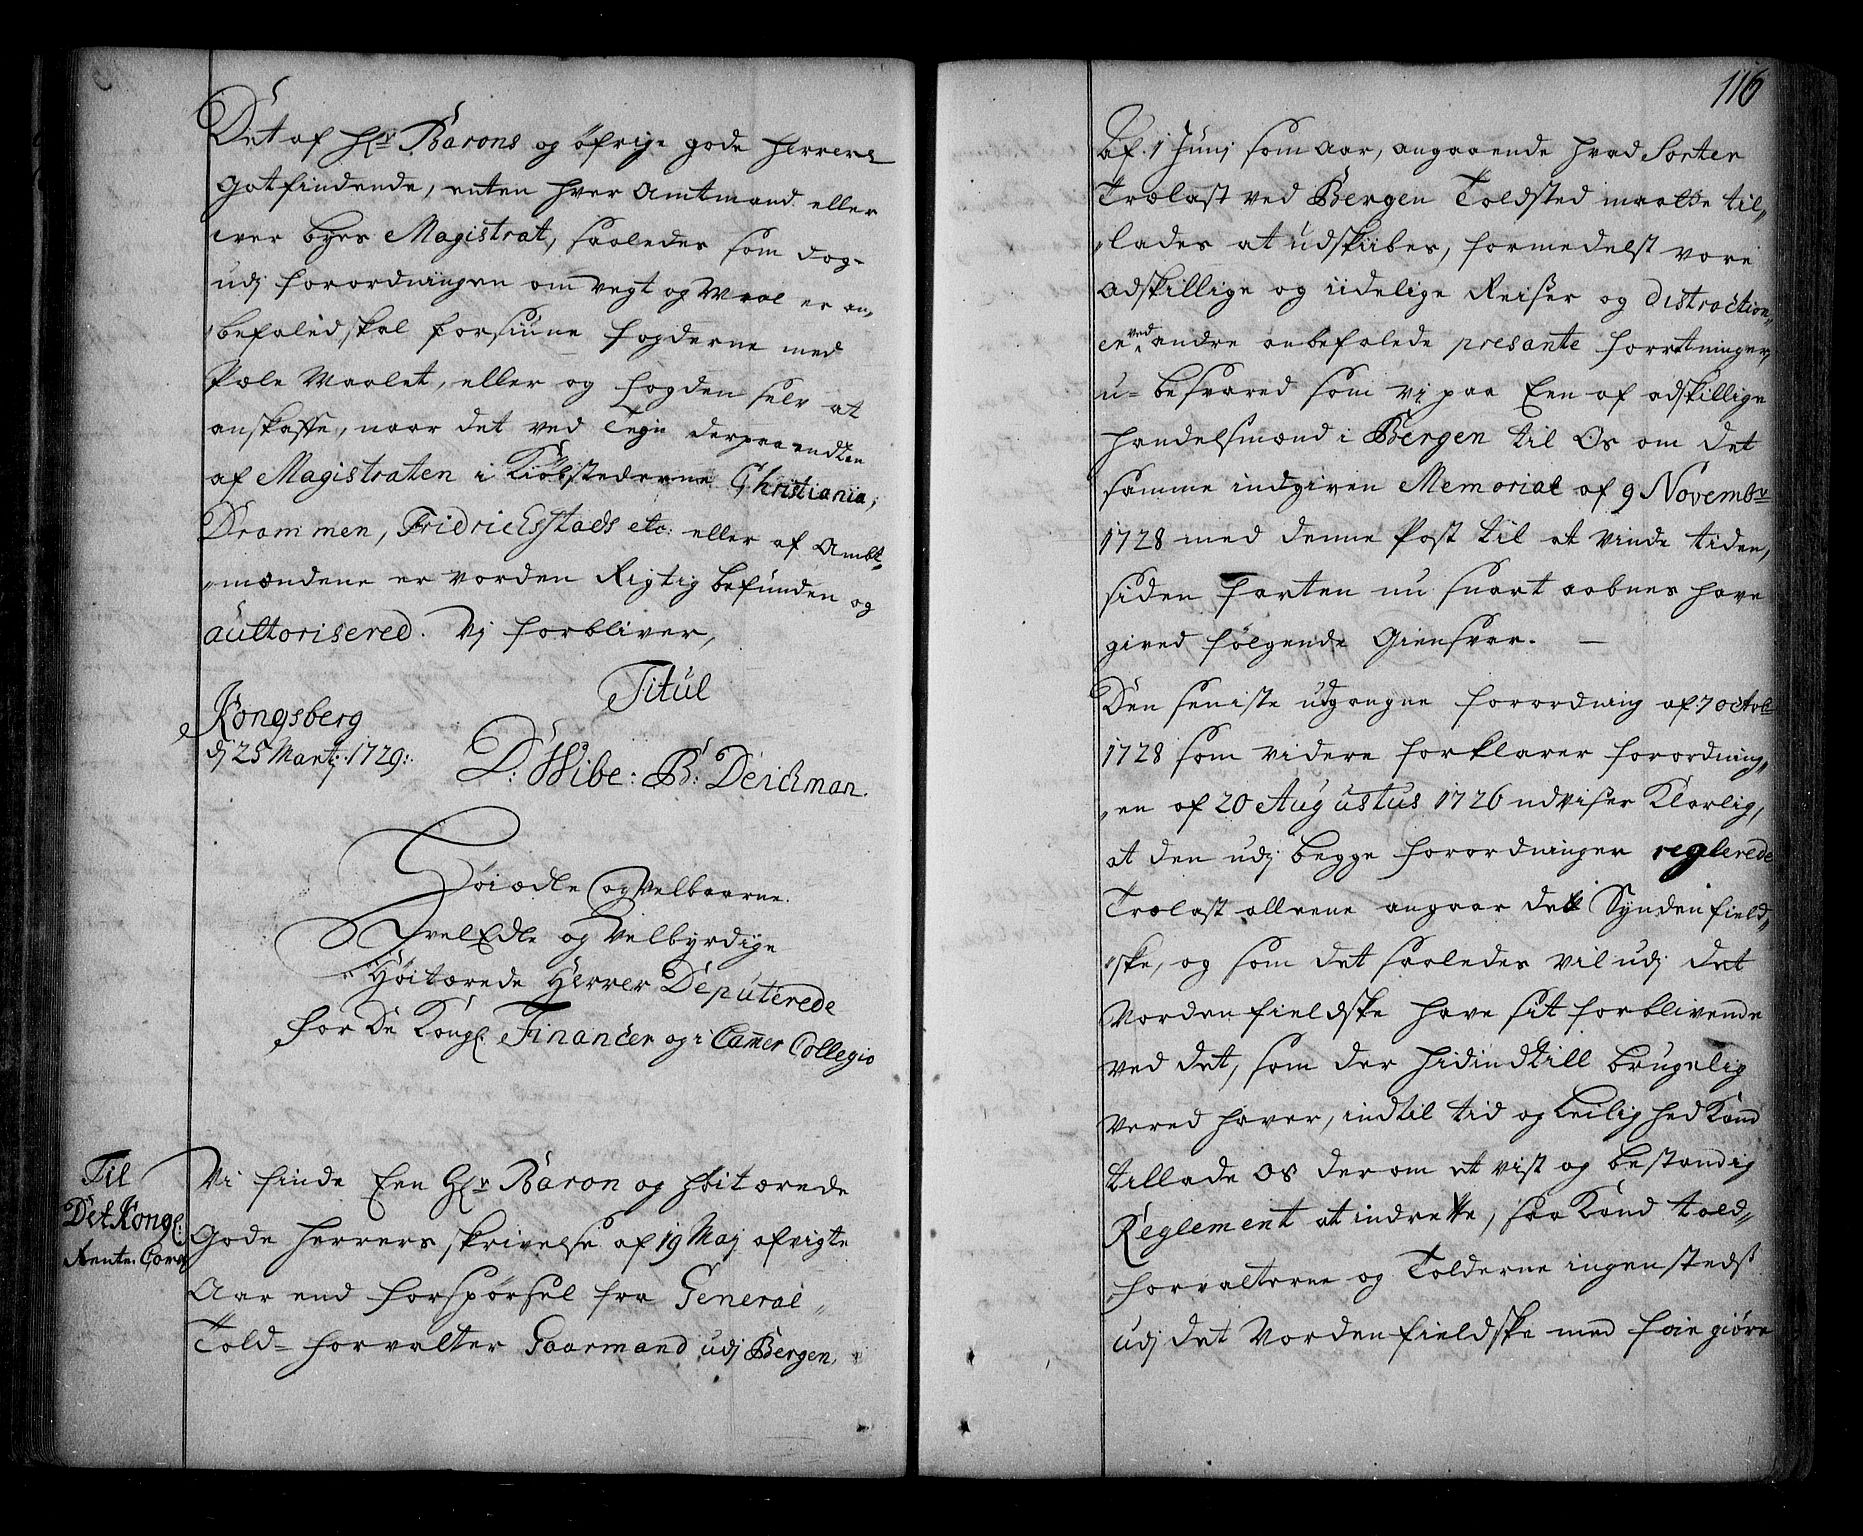 Det af Hr. Barons og öfrige gode Herrers
gotfindende, enten hver Amtmand eller
hver byes Magistrat, saaledes som dog
udj forordningen om vegt og Maal er an„
„befaled, skal forsiüne fogderne med
Pæle Maalet, eller og fogden selv at
anskaffe, naar det ved Tegn derpaa endten
af Magistraten i Kiöbstederne Christiania,
Drammen, Fridrichsstads etc: eller af Ambt„
„mændene er vorden Rigtig befunden og
aüttorisered. Vj forbliver,
Titül
Kongsberg
dj 25 Martj: 1729:
D: Wibe: B: Deichman.
Höiædle og Velbaarne.
Hvel Edle og Velbyrdige
Höitærede Herrer Deputerede
for De Kongl. Financer og i Cam̄er Collegio
Til
Det Kongl.
Rente. Cam̄er
Vi finde Een Hr. Baron og Höitærede
Gode Herrers skrivelse af 19 Maj afvigte
Aar end forspörsel fra General„
Told= forvalter Gaarmand udj Bergen,
116
af 1 Junj som Aar, angaaende hvad Sorter
Trælast ved Bergen Toldsted maatte til„
„lades at udskibes, formedelst vore
adskillige og iidelige Reiser og distraction„
er ved andre anbefalede presante forretninger,
u=besvared som vi paa Een af adskillige
handelsmænd i Bergen til Os om det
samme indgiven Memorial af 9 Novembr
1728 med denne Post til at vinde tiden,
siden farten nu snart aabnes have
gived fölgende Giensvar. —
Den seniste udgangne forordning af 7 octobr
1728 som videre forklarer forordning„
„en af 20 Augustus 1726 udviser Klarlig,
at den udj begge forordninger reglerede
Trælast alleene angaar det Syndenfield„
„ske, og som det saaledes vil udj det
Nordenfieldske have sit forblivende
ved det, som der hidindtill brugelig
vered haver, indtil tid og Leilighed Kand
tillade Os derom et vist og bestandig
Reglement at indrette, saa Kand Told„
forvalterne og Tolderne ingenstedst
udj det Nordenfieldske med föie giöre